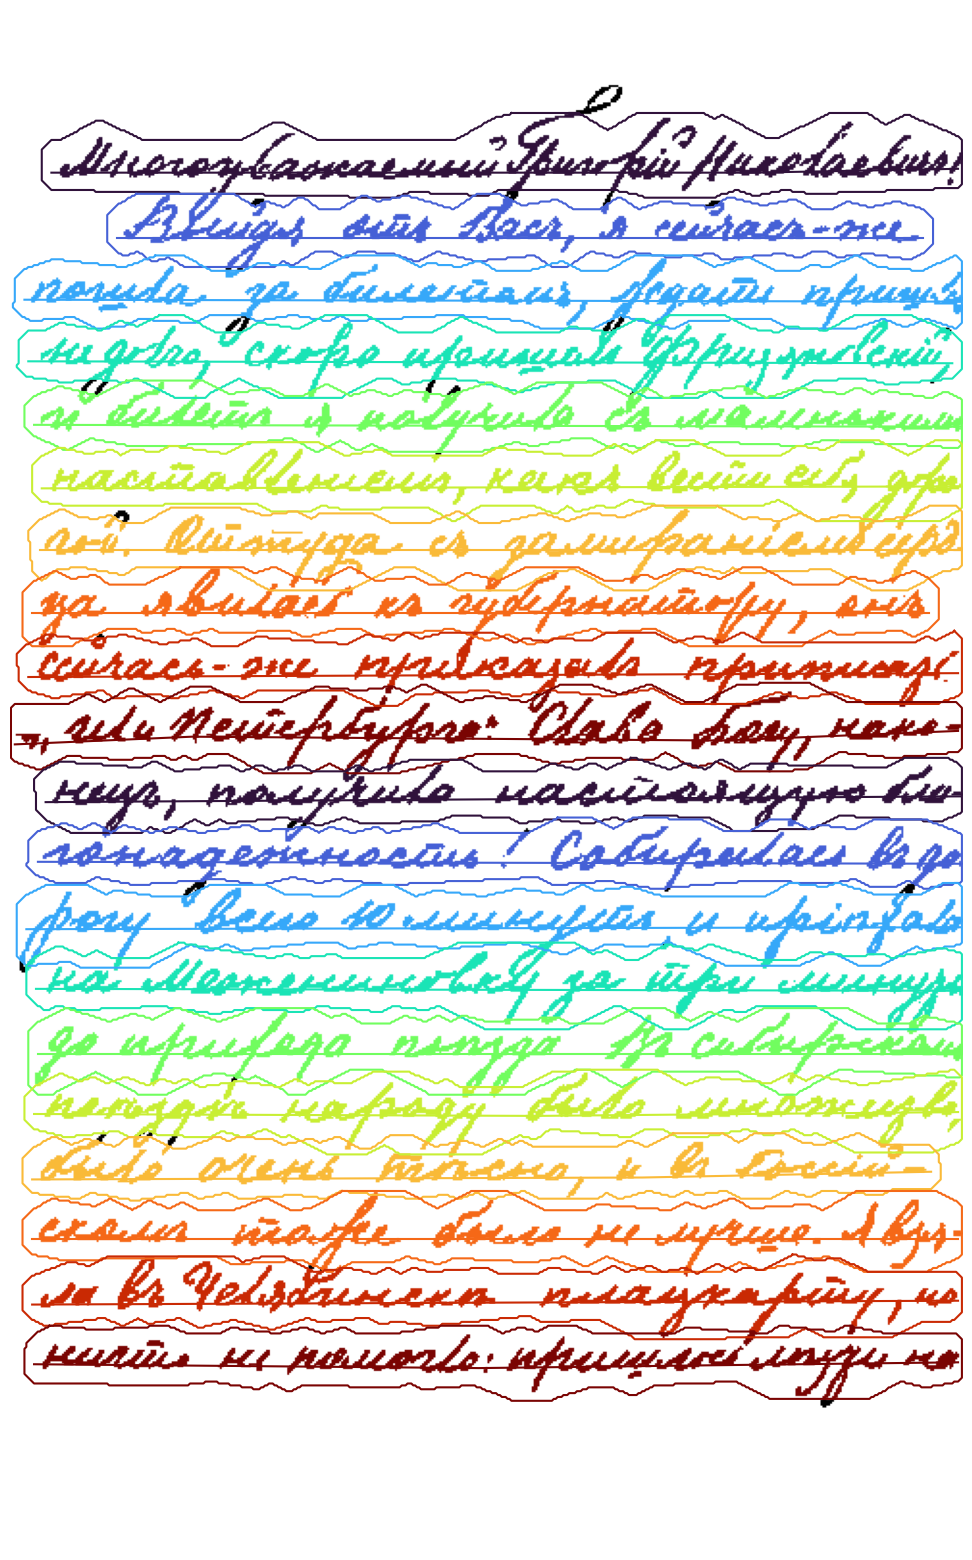 Многоуважаемый Григорій Николаевичъ!
Выйдя отъ Васъ, я сейчасъ-же
пошла за билетомъ, ждать пришл
не долго, скоро пришелъ Фризяновскій,
и билетъ я получила съ маленькимъ
наставленіемъ, какъ вести себя доро
гой. Оттуда съ замираніемъ серд
ца явилась къ губернатору, онъ
сейчасъ-же приказалъ
или Петербурго: Слава Богу, нако-
нецъ, получила настоящую бла-
гонадежность! Собиралась въ до
рогу всего 10 минутъ и пріѣхала
на Межениновку за три минуты
до прихода поѣзда Въ сибирском
поѣздѣ народу было множество,
было очень тѣсно, и въ Россій-
скомъ тоже было не лучше. Я взя-
ла въ Челябинскѣ плацкарту, но
ничто не помогло: пришлые люди на